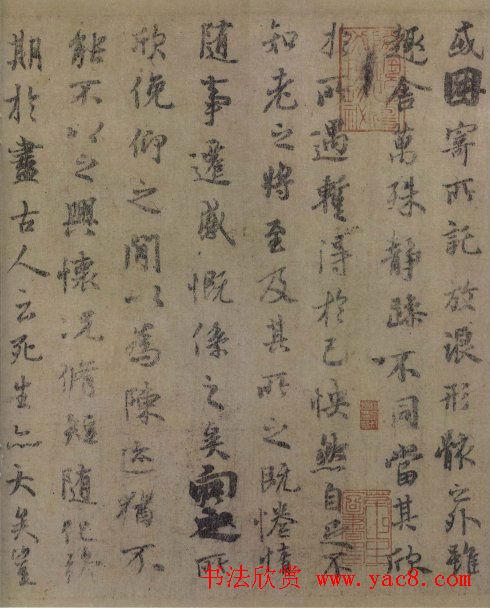 或因寄所託放浪形骸之外雖
趣舍萬殊靜躁不同當其欣
於所遇暫得於己怏然自足不
知老之將至及其所之既惓情
隨事遷感慨係之矣向之所
欣俛仰之閒以為陳迹猶不
能不以之興懷況脩短隨化終
期於盡古人云死生亦大矣豈
书法欣赏 www.yac8.com